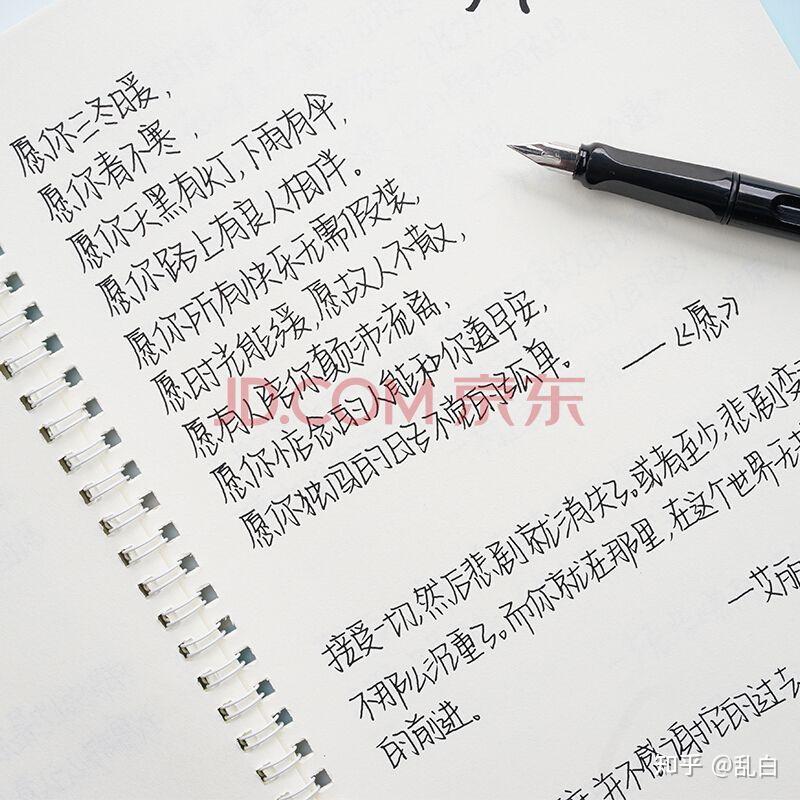 愿你三冬暖，
愿你春不寒，
愿你天黑有灯，下雨有伞，
愿你路上有良人相伴。
愿你所有快乐无需假装，
愿时光能缓，愿故人不散，
愿有人陪你颠沛流离，
愿你惦念的人能和你道早安，
愿你独闯的日子不觉得孤单。
——《愿》
JD.COM 京东
接受一切，然后悲剧就消失了。或者至少，悲剧变
不那么沉重了。而你就在那里，在这个世界无
的前进。
—艾丽
并不感谢它的过去
知乎 @乱白